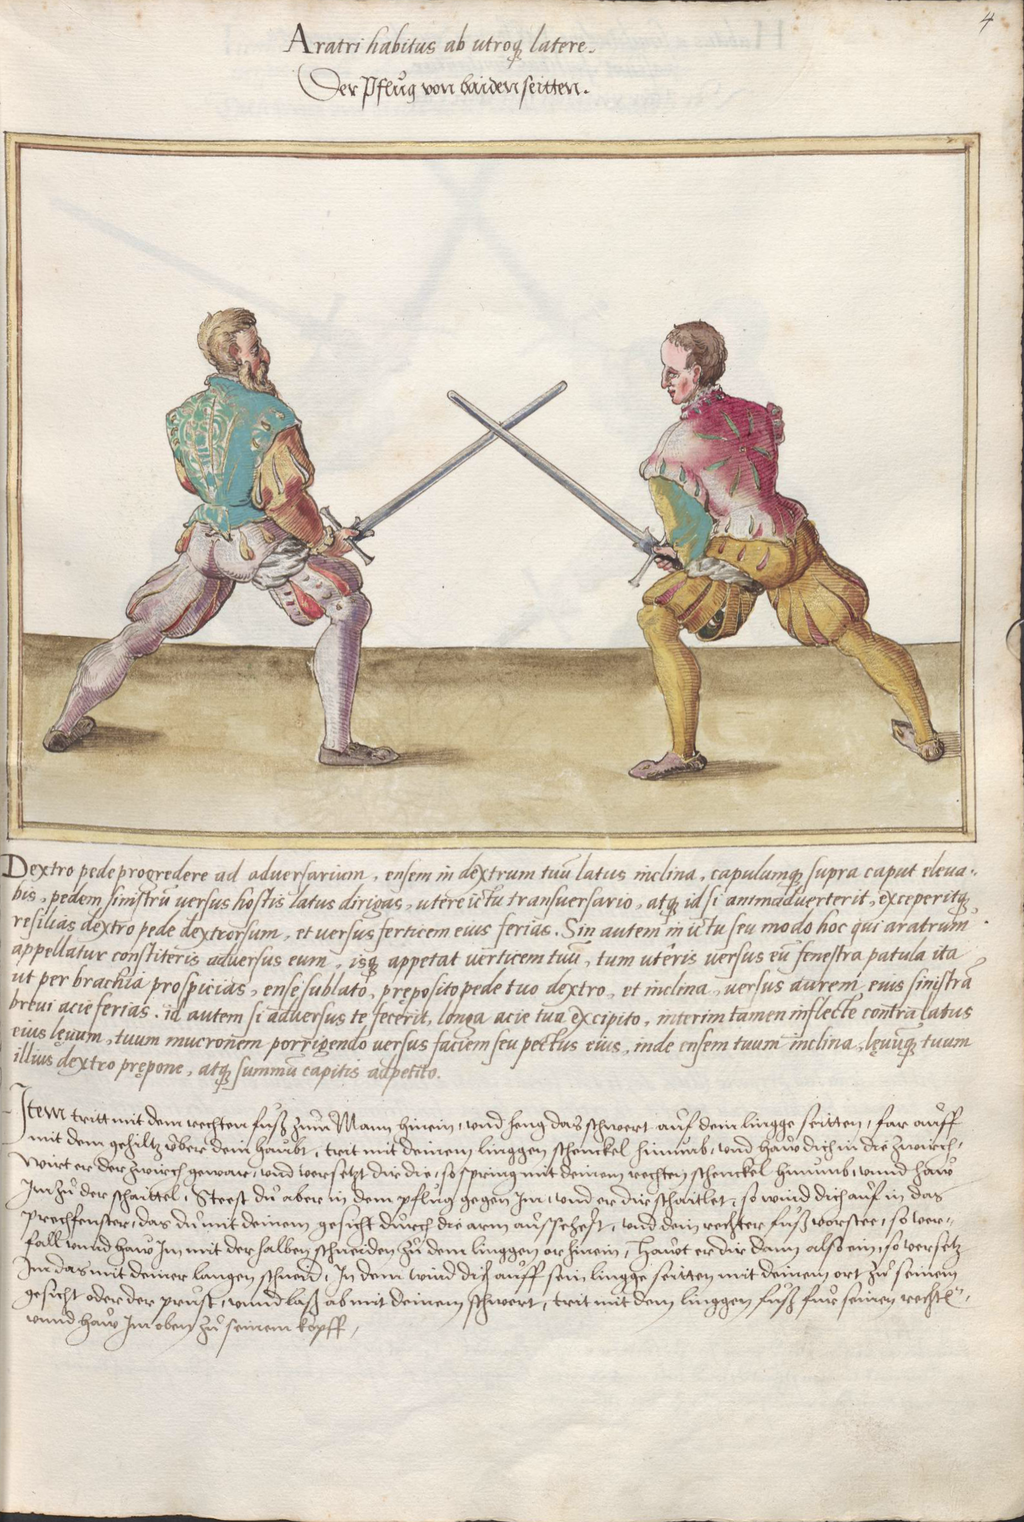 4
Aratri habitus ab utroq̃ latere.
Der Pflůg von baiden seitten.
Dextro pede progredere ad adversarium, ensem in dextrum tuũ latus inclina, capulumq̃ supra caput eleva-
bis, pedem sinistrũ versus hostis latus dirigas, utere ictu transversario, atq̃ id si animadverterit, exceperitq̃
resilias dextro pede dextrorsum, et versus verticem eius ferias. Sin autem in ictu seu modo hoc qui aratrum
appellatur constiteris adversus eum, isq̃ appetat verticem tuũ, tum utêris versus eũ fenestra patula ita
ut per brachia prospicias, ense sublato, pręposito pede tuo dextro, et inclina, versus aurem eius sinistrã
brevi acie ferias. id autem si adversus te fecerit, longa acie tua excipito, interim tamen inflecte contra latus
eius lęvum, tuum mucronem porrigendo versus faciem seu pectus eius, inde ensem tuum inclina, lęvũq̃ tuum
illius dextro prępone, atq̃ summũ capitis adpetito.
Item tritt mit dem rechten fůsz zum Man hinein, vnd heng das schwert auf dein lingge seitten, far aůff
mit dem gehiltz vber dein haubt, trit mit deinem linggen schenckel hinumb, vnd haw dich in die zwirch,
Wirt er der zwirch gewar, vnd versetzt dir die, so spring mit deinem rechten schenckel hinumb, vnnd haw
Im zů der schaittel, Steest dů aber in dem pflůg gegen Im, vnd er dir schaitlet, so wind dich aůf in das
Prechfenster, das dů mit deinem gesicht důrch die arm aussehest, vnd dein rechter fůsz vorstee, so ver-
fall vnnd haw Im mit der halben schneiden zů dem linggen or hinein, Hawt er dir dann also ein, so versetz
Im das mit deiner langen schneid, In dem wind dich aůff sein lingge seitten mit deinem ort zů seinem
gesicht oder der prust, vnnd lasz ab mit deinem schwert, trit mit dem linggen fůsz fur seinen rechtẽ,
vnnd haw Im oben zů seinem kopff,